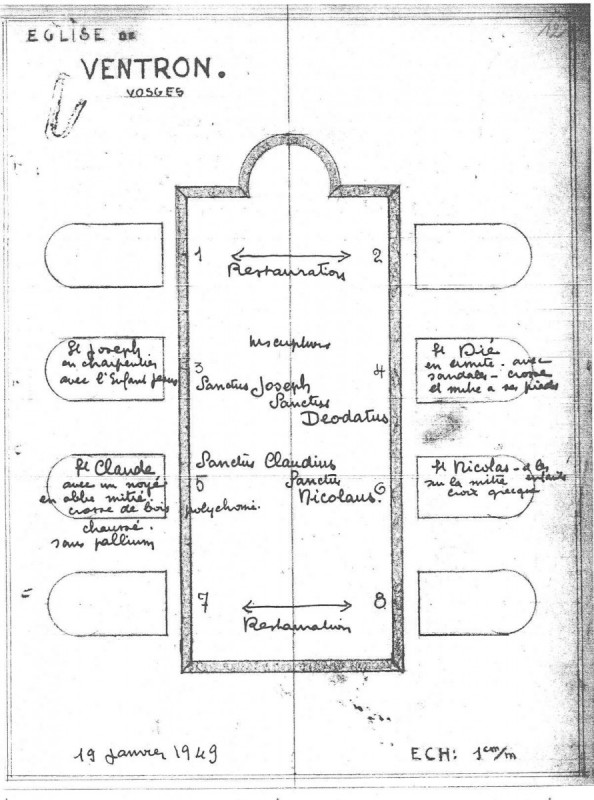 EGLISE DE
VENTRON.
VOSGES
1
2
Restauration
Inscriptions
St Joseph
en charpentier
avec l'Enfant Jesus
3
Sanctus Joseph
Sanctus
Deodatus
4
St Dié
en ermite - avec
sandales - crosse
et mitre a ses pieds
St Claude
avec un noyé
en abbé mitré
crosse de bois polychomé.
chaussé.
sans pallium
Sanctus Claudius
5
Sanctus
Nicolaus.
6
St Nicolas - les enfants
sur la mitre
croix grecque
7
8
Restauration
19 Janvier 1949
ECH: 1 cm/m